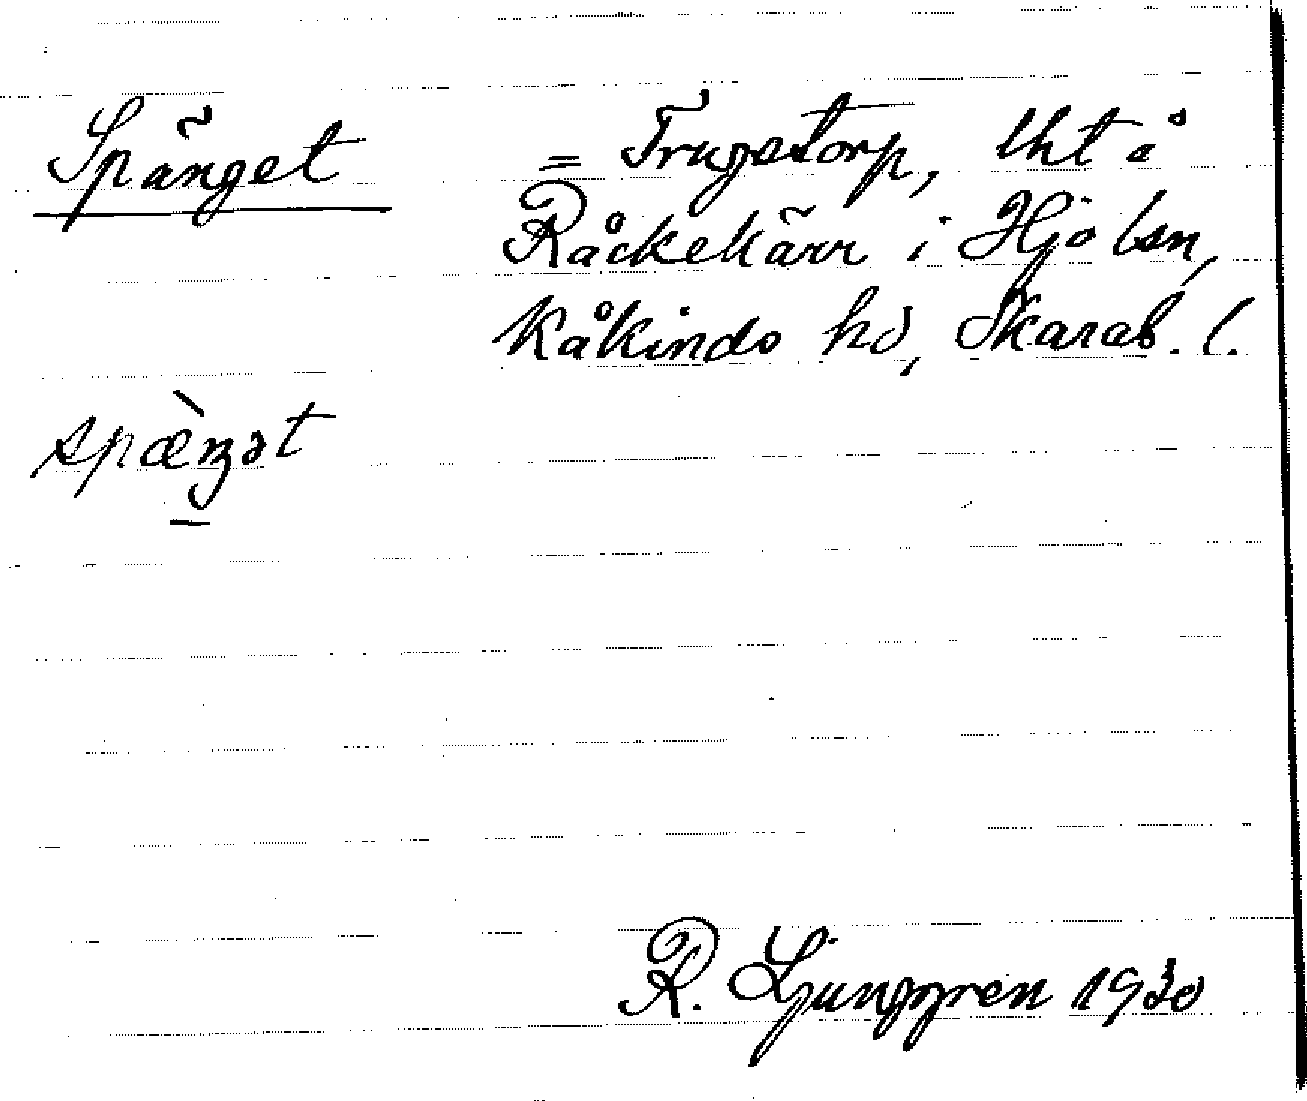 Spänget = Trugstorp, lht å
Råckekärr i Hjo lsn,
Kåkinds hd, Skarab. l.
spæ̀ŋət
R. Ljunggren 1930